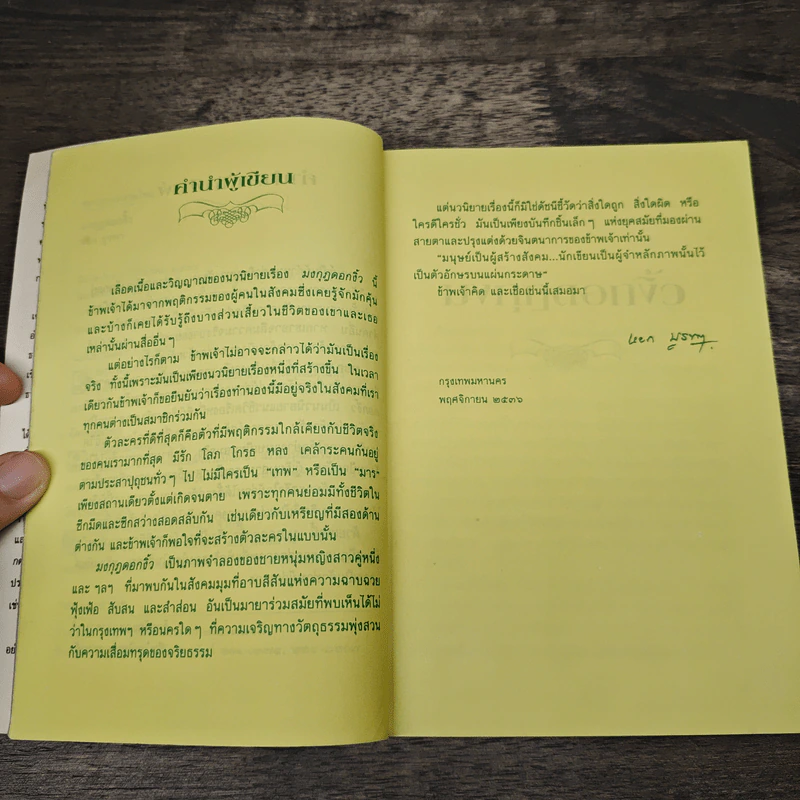 คำนำผู้เขียน
เลือดเนื้อและวิญญาณของนวนิยายเรื่อง มงกุฎดอกงิ้ว นี้
ข้าพเจ้าได้มาจากพฤติกรรมของผู้คนในสังคมซึ่งเคยรู้จักมักคุ้น
และบ้างก็เคยได้รับรู้ถึงบางส่วนเสี้ยวในชีวิตของเขาและเธอ
เหล่านั้นผ่านสื่ออื่นๆ
แต่อย่างไรก็ตาม ข้าพเจ้าไม่อาจจะกล่าวได้ว่ามันเป็นเรื่อง
จริง ทั้งนี้เพราะมันเป็นเพียงนวนิยายเรื่องหนึ่งที่สร้างขึ้น ในเวลา
เดียวกันข้าพเจ้าก็ขอยืนยันว่าเรื่องทำนองนี้มีอยู่จริงในสังคมที่เรา
ทุกคนต่างเป็นสมาชิกร่วมกัน
ตัวละครที่ดีที่สุดก็คือตัวที่มีพฤติกรรมใกล้เคียงกับชีวิตจริง
ของคนเรามากที่สุด มีรัก โลภ โกรธ หลง เคล้าระคนกันอยู่
ตามประสาปุถุชนทั่วๆ ไป ไม่มีใครเป็น "เทพ" หรือเป็น "มาร"
เพียงสถานเดียวตั้งแต่เกิดจนตาย เพราะทุกคนย่อมมีทั้งชีวิตใน
ซีกมืดและซีกสว่างสอดสลับกัน เช่นเดียวกับเหรียญที่มีสองด้าน
ต่างกัน และข้าพเจ้าก็พอใจที่จะสร้างตัวละครในแบบนั้น
มงกุฎดอกงิ้ว เป็นภาพจำลองของชายหนุ่มหญิงสาวคู่หนึ่ง
และ ฯลฯ ที่มาพบกันในสังคมมุมที่อาบสีสันแห่งความฉาบฉวย
ฟุ้งเฟ้อ สับสน และสำส่อน อันเป็นมายาร่วมสมัยที่พบเห็นได้ไม่
ว่าในกรุงเทพฯ หรือนครใดๆ ที่ความเจริญทางวัตถุธรรมพุ่งสวน
กับความเสื่อมทรุดของจริยธรรม
แต่นวนิยายเรื่องนี้ก็มิใช่ดัชนีชี้วัดว่าสิ่งใดถูก สิ่งใดผิด หรือ
ใครดีใครชั่ว มันเป็นเพียงบันทึกชิ้นเล็กๆ แห่งยุคสมัยที่มองผ่าน
สายตาและปรุงแต่งด้วยจินตนาการของข้าพเจ้าเท่านั้น
"มนุษย์เป็นผู้สร้างสังคม...นักเขียนเป็นผู้จำหลักภาพนั้นไว้
เป็นตัวอักษรบนแผ่นกระดาษ"
ข้าพเจ้าคิด และเชื่อเช่นนี้เสมอมา
กรุงเทพมหานคร
พฤศจิกายน ๒๕๓๖